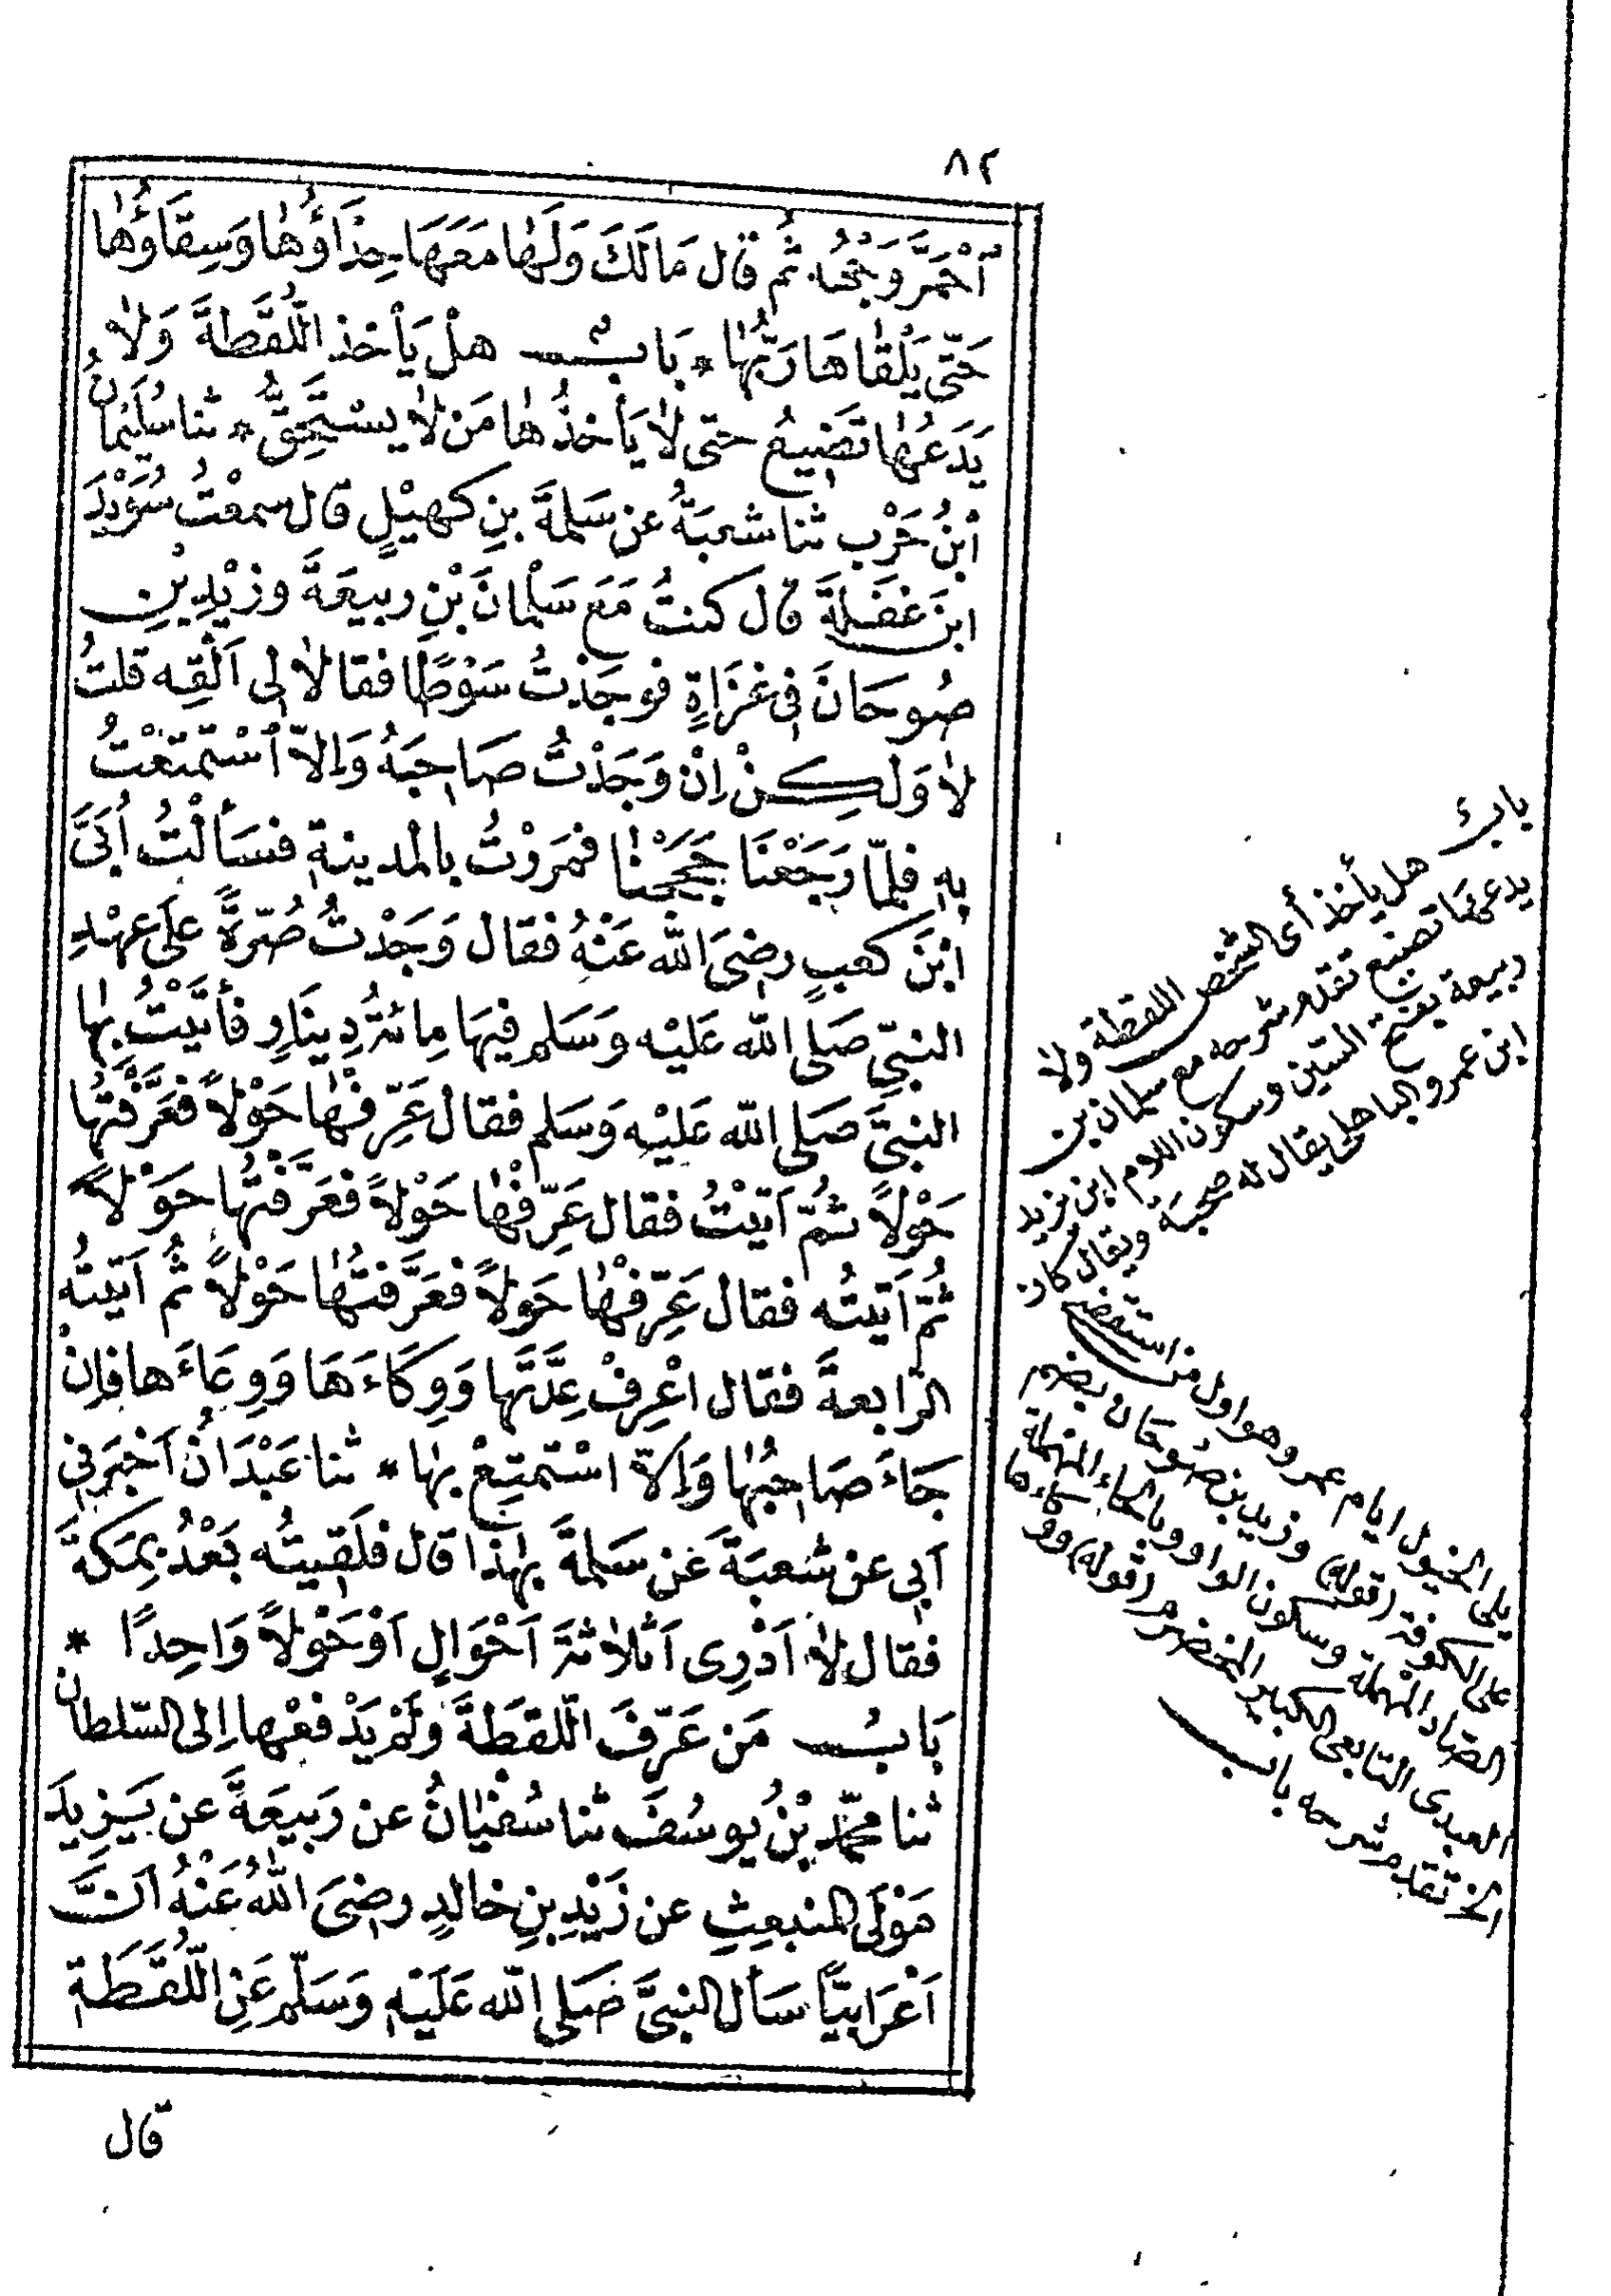 ٨٢
ٱحْمَرَّ وَجْهُه ثُم قال مَالَكَ وَلَهَا مَعَهَا حِذَاؤُهَا وَسِقَاؤُهَا
حَتّى يَلْقَاهَا رَبُّهَا * بَابٌ هلْ يَأخذ اللُّقَطةَ وَلا
يَدَعُهَا تَضِيعُ حتى لَا يَأخذُهَا مَن لَا يسْتَحِقُّ * ثنا سُلَيمَانُ
ابْنُ حَرْب ثنا شعبَةُ عن سَلَمةَ بنِ كهيْلٍ قال سمعْتُ سُوَيْدَ
ابنَ غَفَلَةَ قال كنتُ مَعَ سَلْمانَ بْنِ ربيعَةَ وزيْدِ بْنِ
صُوحَانَ فى غَزَاةٍ فوجَدْتُ سَوْطًا فقالا لى اَلْقِه قلتُ
لا وَلٰكِنْ اِنْ وَجَدْتُ صَاحِبَهُ وَاِلاّ ٱسْتَمتَعْتُ
بِه فلمّا رَجَعْنَا حَجَجْنَا فمَررْتُ بالمدينةِ فسَألْتُ اُبَىَّ
ابْنَ كعبٍ رضىَ اللّه عَنْهُ فقال وَجَدْتُ صُرّةً عَلَى عهْدِ
النبىِّ صَلى اللّه عَلَيْه وَسَلم فِيهَا مِائَةُ دِينَارٍ فأتَيْتُ بِهَا
النبىَّ صَلى اللّه عَلَيْه وَسَلم فقال عَرِّفْهَا حَوْلاً فعَرَّفْتُهَا
حَوْلاً ثُمّ اَتَيْتُ فقال عَرِّفْهَا حَوْلاً فعَرَّفتُهَا حَوْلاً
ثُمّ اَتَيتُه فقال عَرِّفْهَا حَولاً فعَرَّفتُهَا حَوْلاً ثُم اَتَيتُه
الرّابعةَ فقال اعْرِفْ عِدَّتَها وَوِكَاءَهَا وَوِعَاءَها فإنْ
جَاءَ صَاحِبُهَا وَاِلاّ اسْتَمتِعْ بهَا * ثنا عَبْدَانُ اَخْبَرَنِى
اَبِى عن شعبَةَ عَن سَلمةَ بهٰذا قال فلَقِيتُه بَعْدُ بِمَكةَ
فقال لاَ اَدْرِى اَثَلاثةَ اَحْوَالٍ اَوْ حَوْلاً وَاحِدًا *
بَابُ مَن عَرَّفَ اللّقَطَةَ وَلَمْ يَدْفعْها اِلى السّلطان
ثنا محمّد بْنُ يوسُفَ ثنا سُفيَانُ عن رَبِيعَةَ عن يَزِيدَ
مَوْلَى المنبعِثِ عن زَيْدِ بنِ خالدٍ رضىَ اللّٰهُ عَنْهُ اَنَّ
اَعْرَابيًّا سَأل النبىَّ صَلى اللّه عَلَيْهِ وَسَلّم عَنِ اللُّقَطَةِ
قال
باب هل يأخذ أى الشخص اللقطة ولا
يدعها تضيع تقدم شرحه مع سلمان بن
ربيعة بفتح السّين وسكون اللام ابن يزيد
ابن عمرو الباهلى يقال له صحبة ويقال كان
يلى الخيول ايام عمر وهو اول من استقضى
على الكوفة (قوله) وزيد بن صُوحَان بضم
الصّاد المهملة وسكون الواو وبالحاء المهملة
العبدى التابعى الكبير المخضرم (قوله) ووكاءها
الخ تقدم شرحه باب